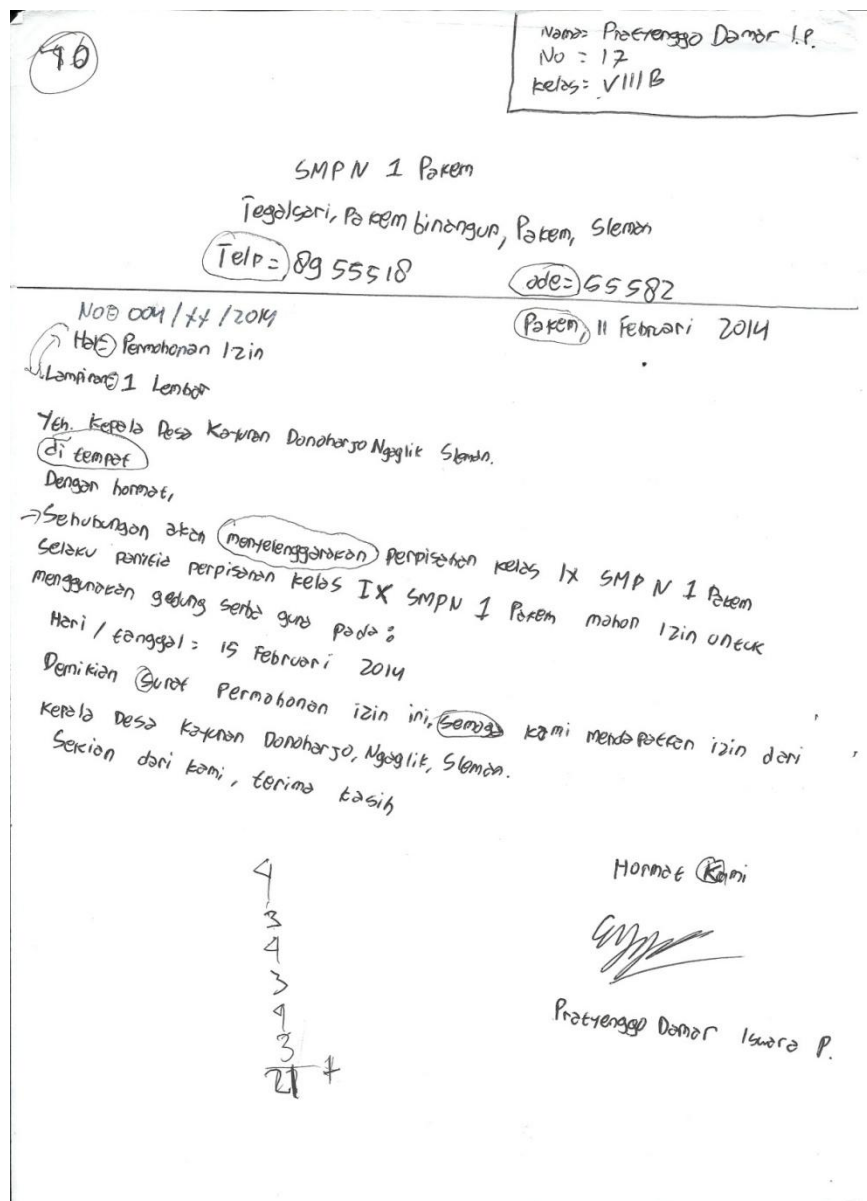 Nama= Pratyenggo Damar I.P.
No : 17
Kelas= VIII B
SMP N 1 Pakem
Tegalsari, Pakem binangun, Pakem, Sleman
Telp=) 89 55518
ode=) 55582
No= 004/xx/2014
Pakem, 11 Februari 2014
Hal= Permohonan Izin
Lampiran= 1 Lembar
Yth. Kepala Desa Kayunan Donoharjo Ngaglik Sleman.
di tempat
Dengan hormat,
Sehubungan akan menyelenggarakan perpisahan kelas IX SMP N 1 Pakem
Selaku panitia perpisahan kelas IX SMPN 1 Pakem mohon Izin untuk
menggunakan gedung serba guna pada:
Hari / tanggal = 15 Februari 2014
Demikian Surat Permohonan izin ini, semoga kami mendapatkan izin dari
Kepala Desa Kayunan Donoharjo, Ngaglik, Sleman.
Sekian dari kami, terima kasih
4
3
4
3
4
3
21 +
Hormat Kami
Pratyenggo Damar Iswara P.